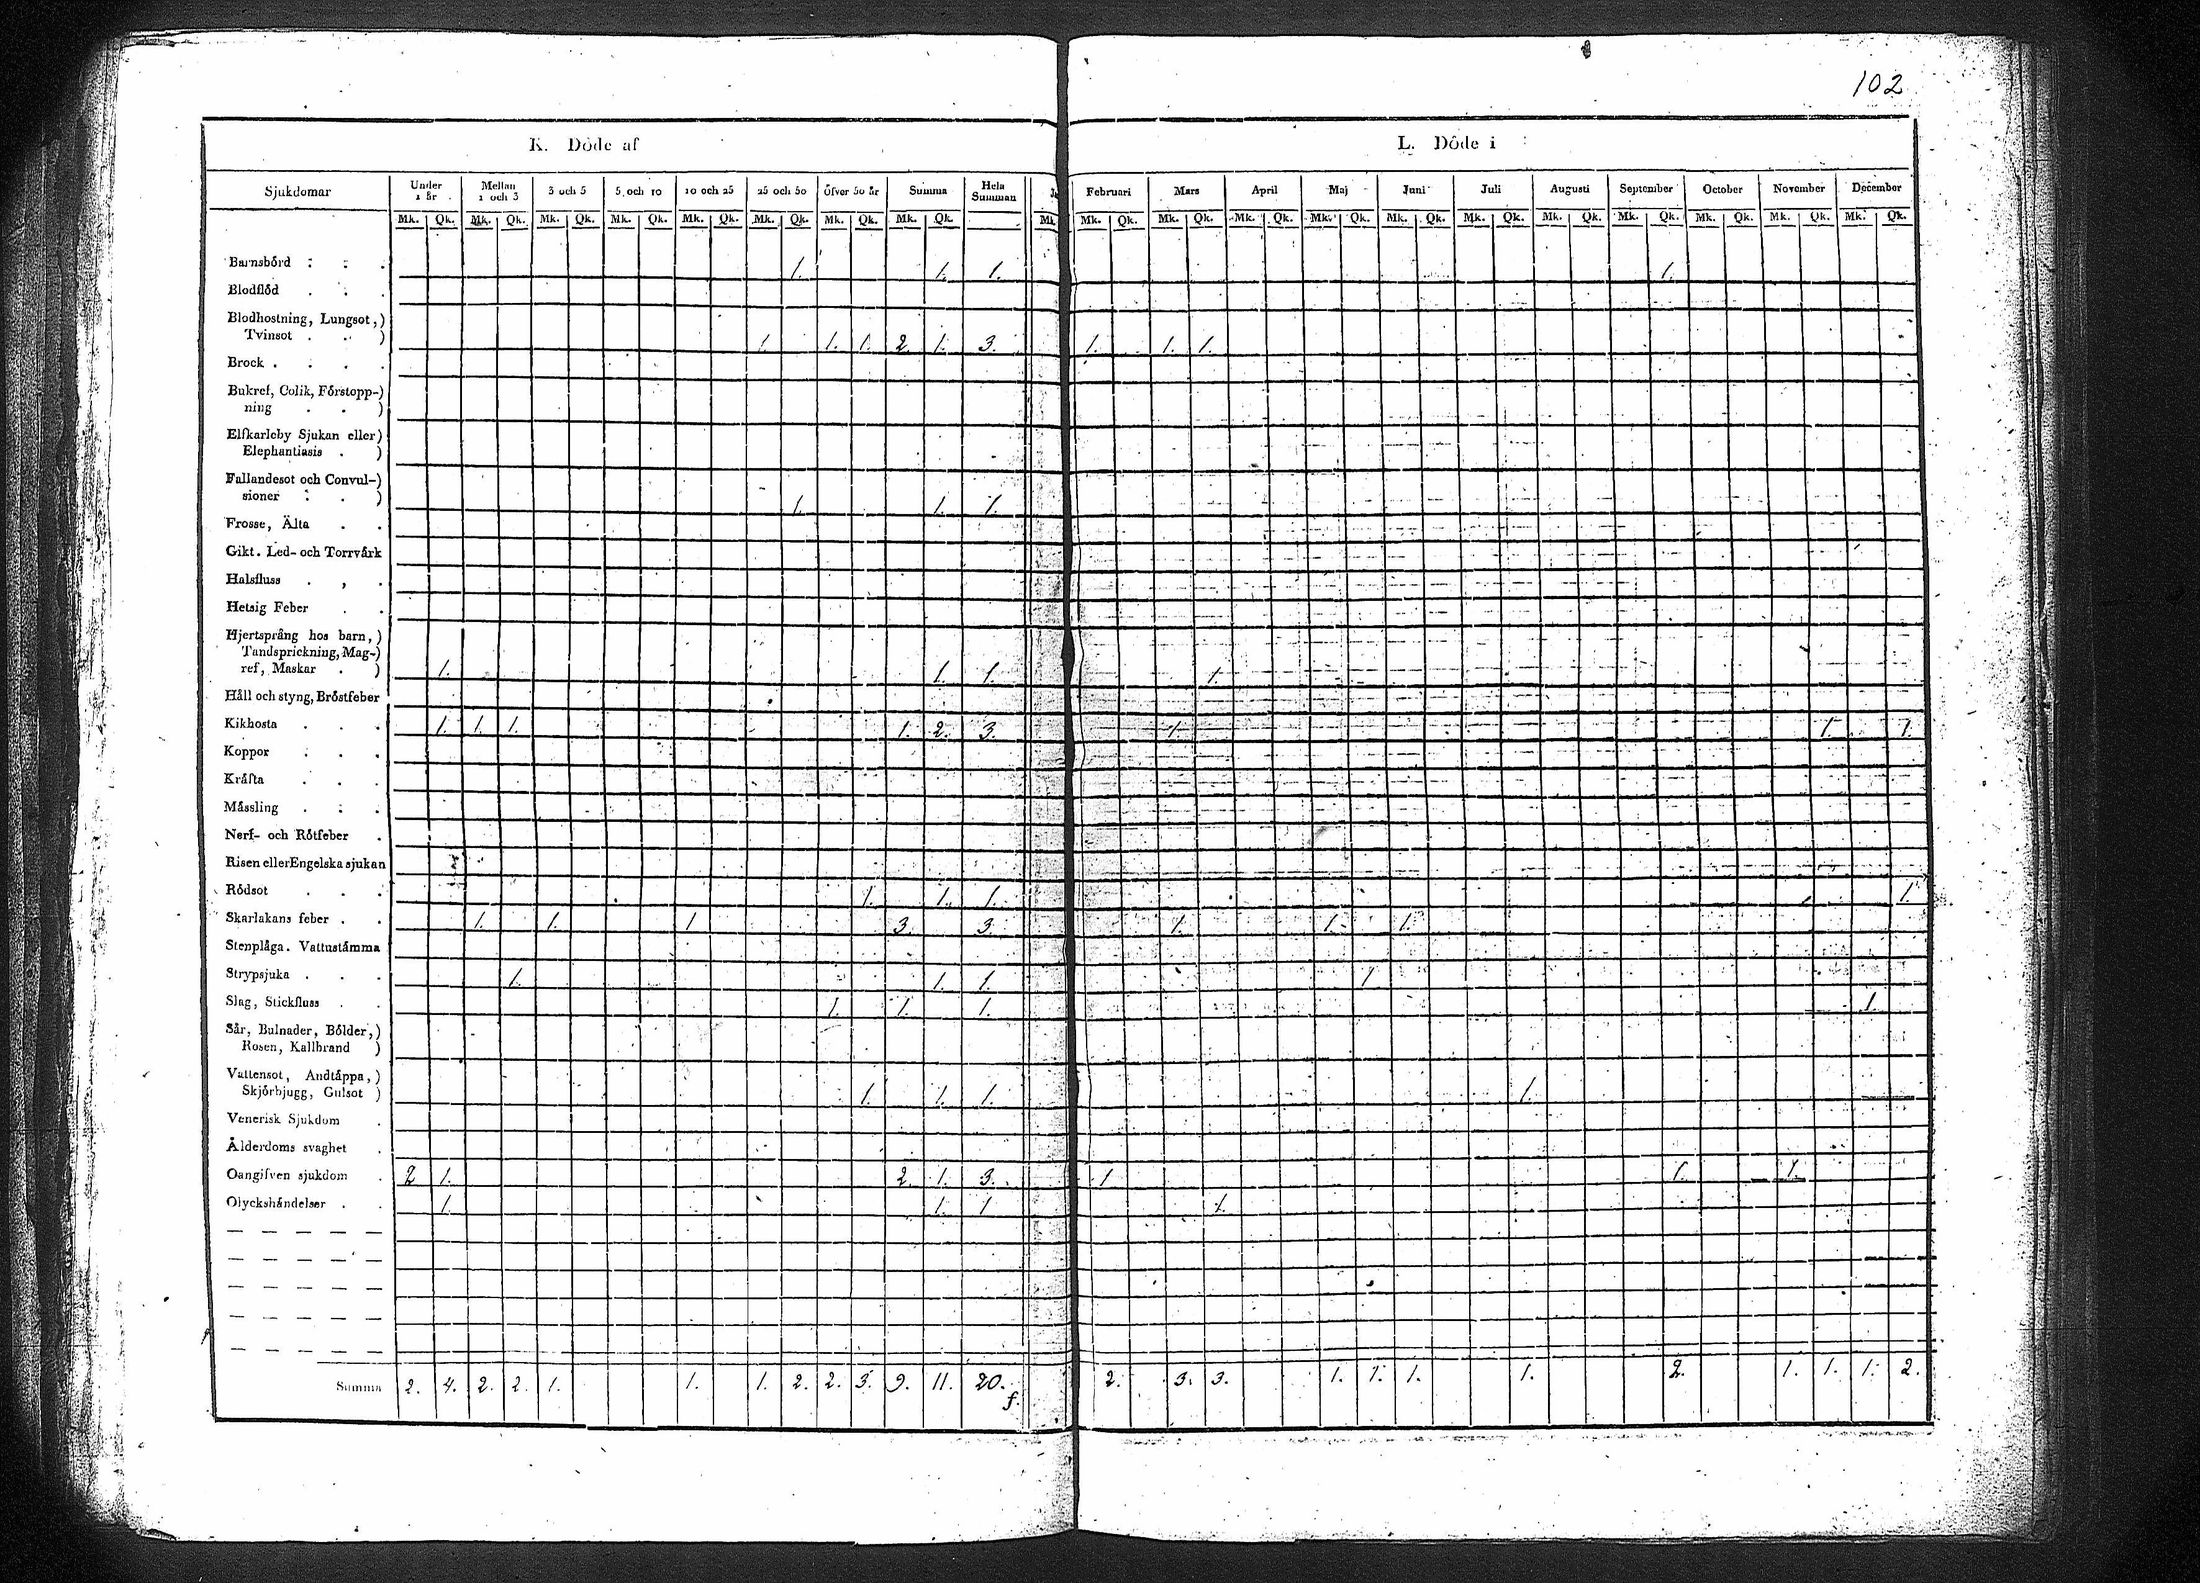 102
K. Döde af
L. Döde i
Sjukdomar Under 1 år Mellan 1 och 3 3 och 5 5 och 10 10 och 25 25 och 50 Öfver 50 år Summa Hela Summan Februari Mars April Maj Juni Juli Augusti September October November December
Mk. Qk. Mk. Qk. Mk. Qk. Mk. Qk. Mk. Qk. Mk. Qk. Mk. Qk. Mk. Qk. Mk. Mk. Qk. Mk. Qk. Mk. Qk. Mk. Qk. Mk. Qk. Mk. Qk. Mk. Qk. Mk. Qk. Mk. Qk. Mk. Qk. Mk. Qk.
Barnsbörd . . . 1. 1. 1. 1.
Blodflöd . . .
Blodhostning, Lungsot,)
Tvinsot . . ) 1. 1. 1. 2. 1. 3. 1. 1. 1.
Brock . . . .
Bukref, Colik, Förstopp-)
ning . . )
Elfkarleby Sjukan eller)
Elephantiasis . )
Fallandesot och Convul-)
sioner . . ) 1. 1. 1.
Frosse, Älta . .
Gikt. Led- och Torrvärk
Halsfluss . , .
Hetsig Feber . .
Hjertsprång hos barn, )
Tandsprickning, Mag-)
ref, Maskar . ) 1. 1. 1. 1.
Håll och styng, Bröstfeber
Kikhosta . . . 1. 1. 1. 1. 2. 3. 1. 1. 1.
Koppor . . .
Kräfta . . .
Mässling . . .
Nerf- och Rötfeber .
Risen eller Engelska sjukan
Rödsot . . . 1. 1. 1. 1.
Skarlakans feber . . 1. 1. 1 3. 3. 1. 1. 1.
Stenplåga. Vattustämma
Strypsjuka . . . 1. 1. 1. 1
Slag, Stickfluss . . 1. 1. 1. 1.
Sår, Bulnader, Bölder,)
Rosen, Kallbrand )
Vattensot, Andtäppa, )
Skjörbjugg, Gulsot ) 1. 1. 1. 1.
Venerisk Sjukdom .
Ålderdoms svaghet .
Oangifven sjukdom . 2 1. 2. 1. 3. 1 1. 1.
Olyckshändelser . . 1. 1. 1 1.
Summa 2. 4. 2. 2. 1. 1. 1. 2. 2. 3. 9. 11. 20. 2. 3. 3. 1. 1. 1. 1. 2. 1. 1. 1. 2.
f.